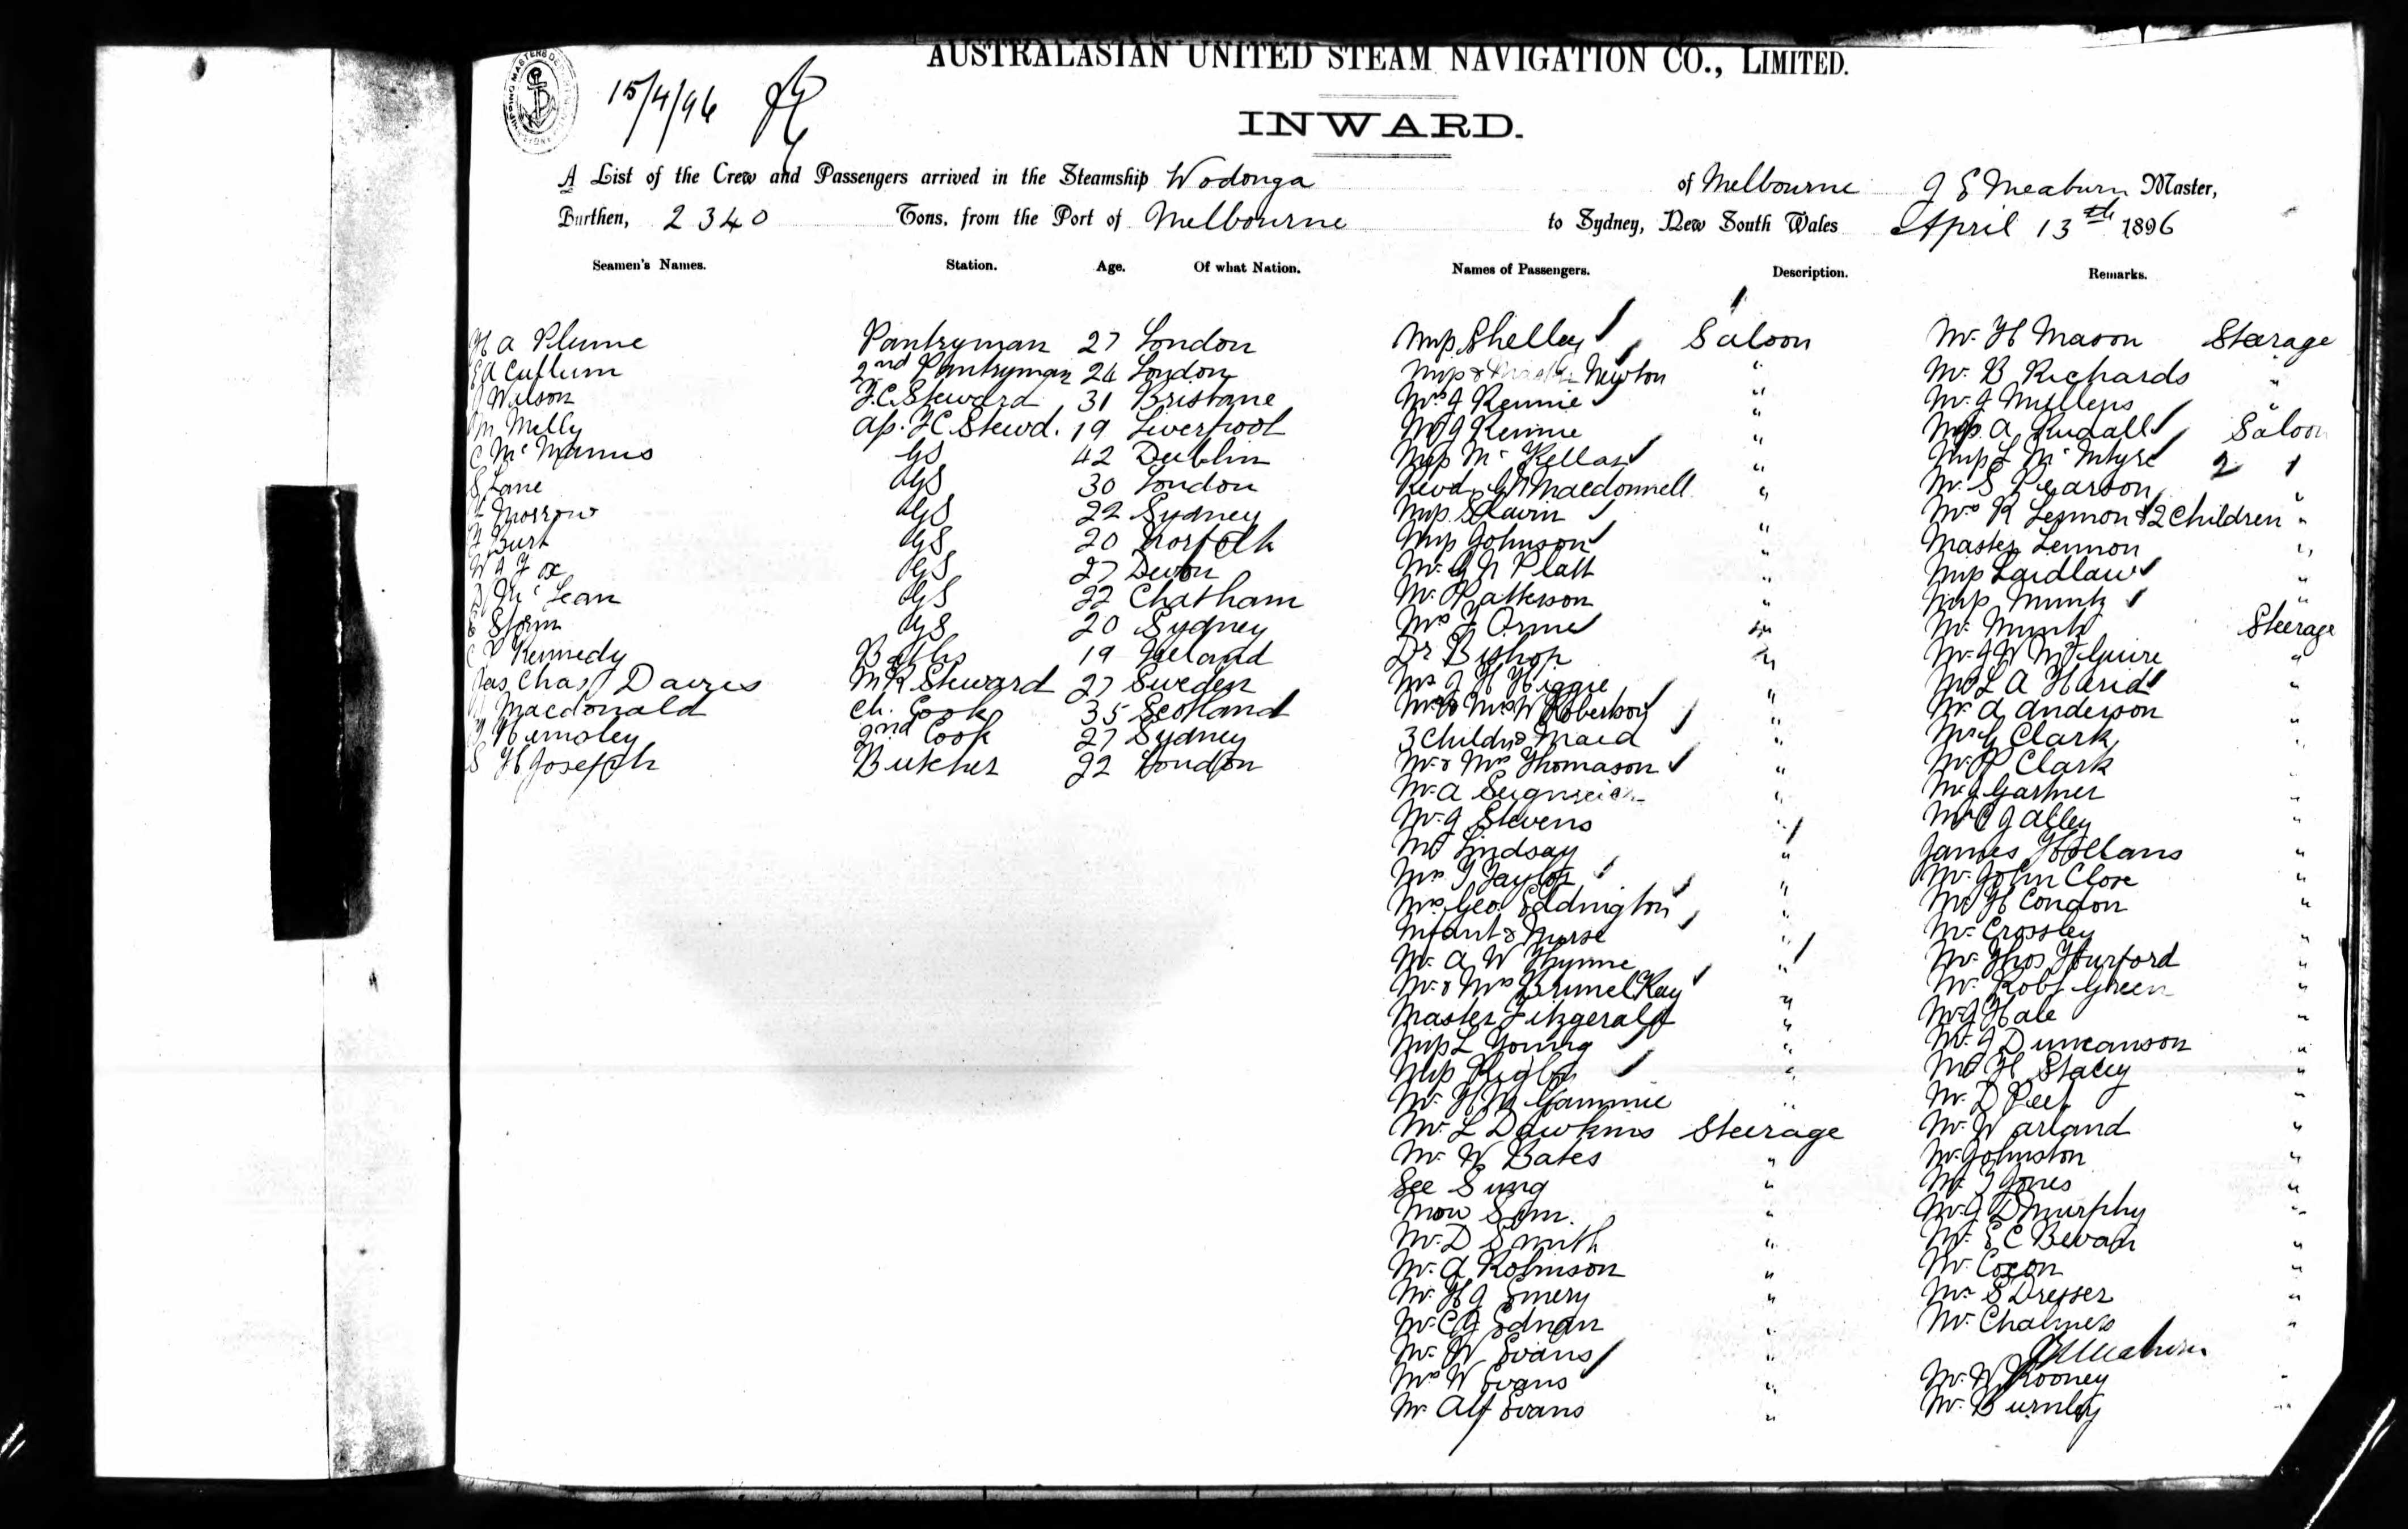 AUSTRALASIAN UNITED STEAM NAVIGATION CO., LIMITED.
15/4/96
INWARD.
A List of the Crew and Passengers arrived in the Steamship Wodonga of Melbourne J E Meaburn Master,
Burthen, 2340 Tons, from the Port of Melbourne to Sydney, New South Wales April 13th 1896
Seamen's Names. Station. Age. Of what Nation. Names of Passengers. Description. Remarks.
H A Plume Pantryman 27 London
E A Cullum 2nd Pantryman 24 London
J Wilson F.C. Steward 31 Brisbane
M Melly as. F C Stewd. 19 Liverpool
C McManus GS 42 Dublin
S Lane GS 30 London
Morrow GS 22 Sydney
Burt GS 20 Norfolk
W A Fox GS 27 Devon
D McLean GS 22 Chatham
E Storm GS 20 Sydney
Kennedy Baths 19 Ireland
Chas Davies M R Steward 27 Sweden
Macdonald Ch. Cook 35 Scotland
Hemsley 2nd Cook 27 Sydney
S H Joseph Butcher 22 London
Miss Shelley Saloon
Miss & Newton "
Mrs J Rennie "
Mr J Rennie "
Miss McKellar "
Revd G Macdonnell "
Miss Slavin
Miss Johnson "
Mr. G N Platt "
Mr. Patterson "
Mrs F Orme "
Dr Bishop "
J H Higgie "
Mr & Mrs W Robertson "
3 Childn & Maid "
Mr. & Mrs Thomason "
Mr. A "
Mr. J Stevens "
Mr Lindsay "
Mrs J Taylor "
Mrs. Geo. Eddington "
Infant & Nurse "
Mr. A W Thynne "
Mr. & Mrs Brunel Kay "
Master Fitzgerald "
Miss L Young "
Miss Rigby "
Mr. H W Gammie "
Mr. L Dawkins Steerage
Mr. W Bates "
See Sung "
Mow Sim. "
Mr. D Smith "
Mr. A Robinson "
Mr. H J Emery "
Mr. C J Ednan "
Mr. W Evans "
Mrs W Evans "
Mr Alf Evans "
Mr. H Mason Steerage
Mr. B Richards "
Mr. J Mullens "
Miss A Rudall Saloon
Miss L McIntyre 2 1
Mr. S Pearson "
Mrs R Lennon & 2 Children "
Master Lennon "
Miss Laidlaw "
Miss Muntz "
Mr. Muntz Steerage
Mr. J W McGuire "
L A Harid "
Mr A Anderson "
Clark "
Mr. P Clark
Mr. J Gartner "
Mr C J Alley "
James Hollans "
Mr. John Close "
Mr H Condon "
Mr. Crossley "
Mr. Thos Hurford "
Mr. Robt Green "
Mr. J Hale "
Mr. J Duncanson "
Mr H Stacey "
Mr. D Peel "
Mr. W arland "
Mr. Johnston "
Mr. J Jones "
Mr. J D Murphy "
Mr. E C Bevan "
Mr. Coxon "
Mr S Dresser "
Mr. Chalmers "
J E Meaburn
Mr. W Rooney "
Mr. Burnley "